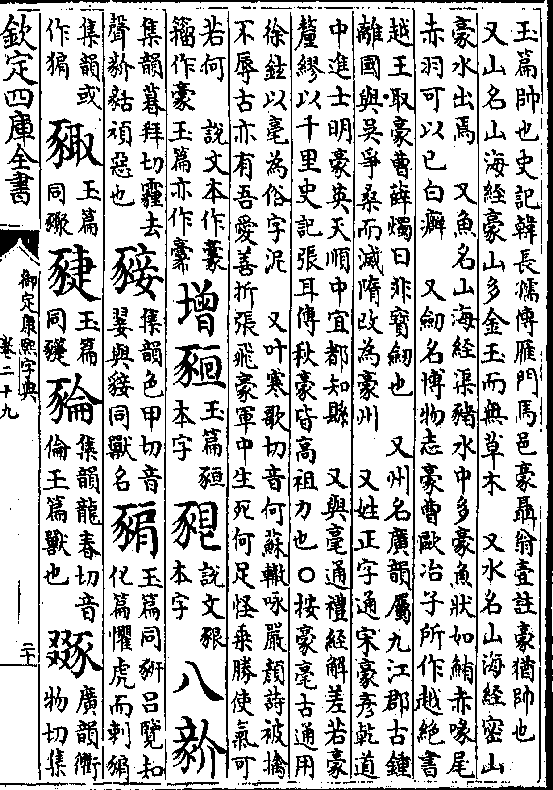 玉篇帥也史記韓長孺傳雁門馬邑豪聶翁壹註豪猶帥也
又山名山海經豪山多金玉而無草木　又水名山海經密山
豪水出焉　又魚名山海經渠豬水中多豪魚狀如鮪赤喙尾
赤羽可以已白癬　又劒名博物志豪曹歐冶子所作越絕書
越王取豪曹薛燭曰非寶劒也　又州名廣韻屬九江郡古鍾
離國與吳爭桑而滅隋改為豪州　又姓正字通宋豪彥乾道
中進士明豪英天順中宜都知縣　又與毫通禮經解差若豪
釐繆以千里史記張耳傳秋豪皆高祖力也○按豪毫古通用
徐鉉以毫為俗字泥　又叶寒歌切音何蘇轍咏嚴顏詩被擒
不辱古亦有吾愛善折張飛豪軍中生死何足怪乘勝使氣可
若何　說文本作𣫞籀作豪玉篇亦作䯨　增　豲　玉篇豲本字　䝚　說文豤本字　八　䜣
集韻暮拜切霾去聲䜣䝿頑惡也　𧳜　集韻色甲切音翣與𧳜同獸名　𧳖　玉篇同豣呂覽知化篇懼虎而刺猏
集韻或作猏　𧳏　玉篇同䝐　𧱁　玉篇同𧱚　𧱓　集韻龍春切音倫玉篇獸也　𧱏　廣韻衢物切集
欽定四庫全書
御定康熙字典
卷二十九
二十